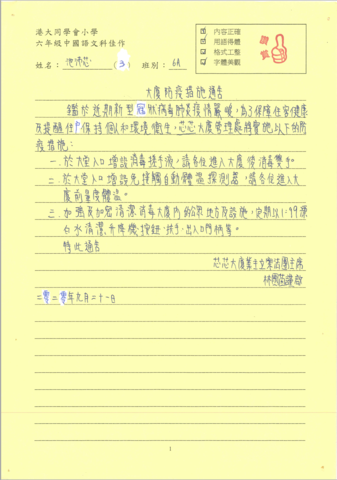 港大同學會小學
六年級中國語文科佳作
姓名： (3) 班別： 6A
內容正確
用語得體
格式工整
字體美觀
大廈防疫措施通告
鑑於近期新型冠狀病毒肺炎疫情嚴峻，為了保障住客健康
及提醒住戶保持個人和環境衛生，芯芯大廈管理處將實施以下的防
疫措施：
一．於大堂入口增設消毒搓手液，請各位進入大廈後消毒雙手。
二．於大堂入口增設免接觸自動體溫探測器，請各位進入大
廈前量度體溫。
三．加強及加密清潔消毒大廈內的公眾地方及設施，定期以1:99漂
白水清潔升降機按鈕、扶手、出入口門柄等。
特此通告
芯芯大廈業主立案法團主席
林 謹啟
二零二零年九月二十一日
1